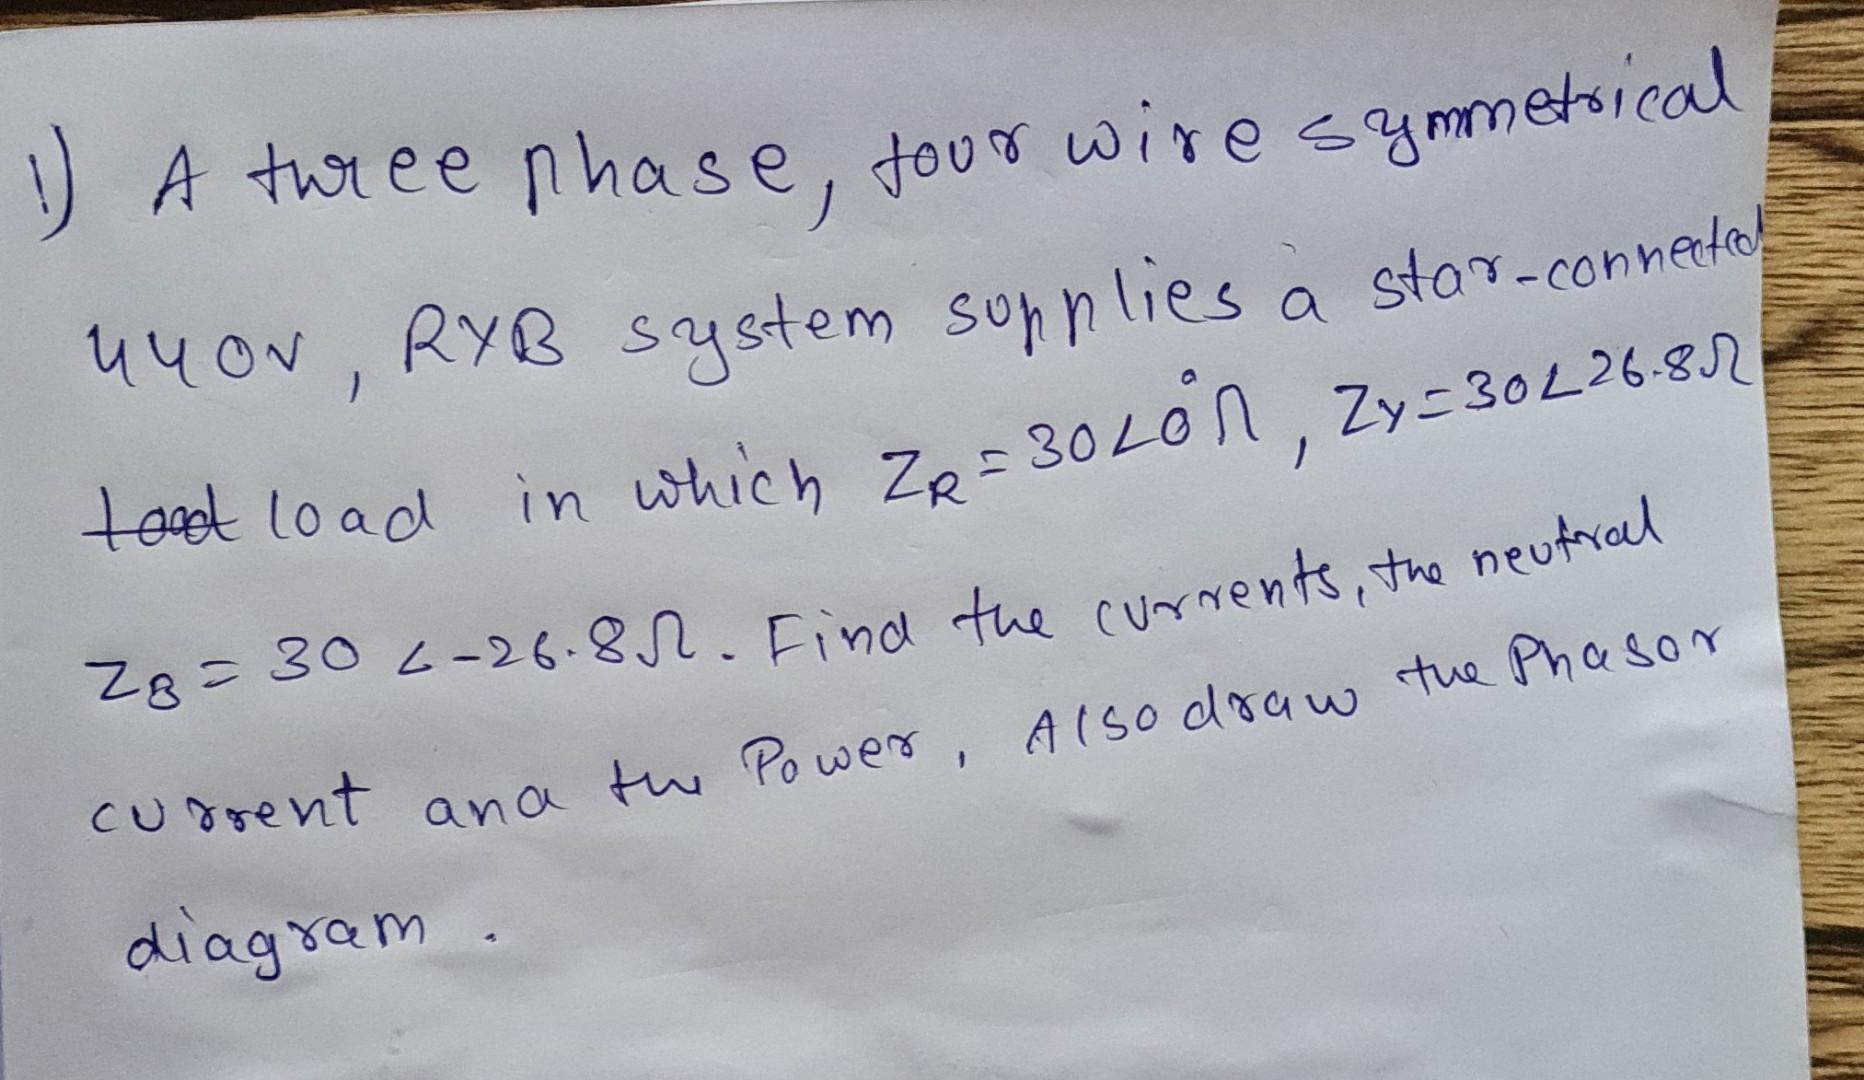 1) A three phase, four wire symmetrical
440V, RYB system supplies a star-connected
load in which ZR = 30∠0°Ω, ZY = 30∠26.8Ω
ZB = 30∠-26.8Ω. Find the currents, the neutral
current and the Power, Also draw the Phasor
diagram.